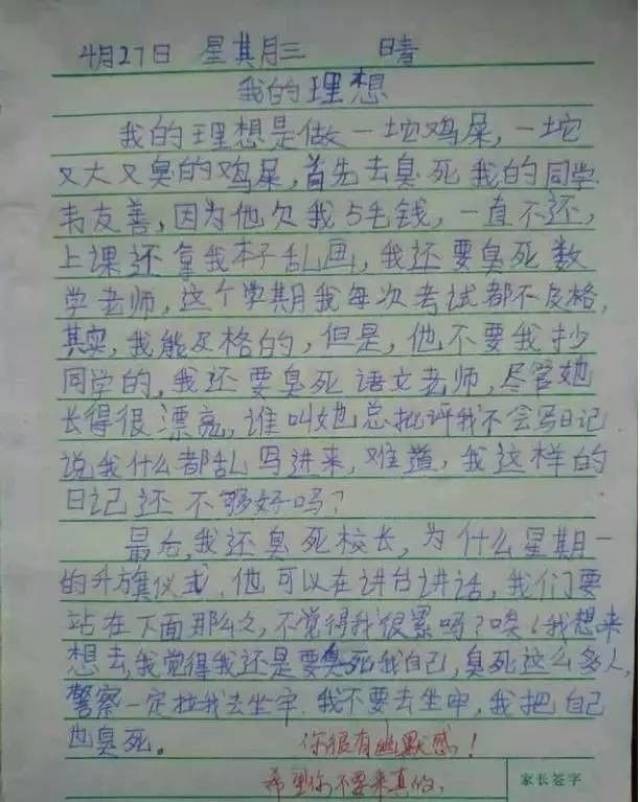 4月27日 星其月三 晴
我的理想
我的理想是做一坨鸡屎,一坨
又大又臭的鸡屎,首先去臭死我的同学
韦友善,因为他欠我5毛钱,一直不还,
上课还拿我本子乱画,我还要臭死数
学老师,这个学期我每次考试都不及格,
其实,我能及格的,但是,他不要我抄
同学的,我还要臭死语文老师,尽管她
长得很漂亮,谁叫她总批评我不会写日记
说我什么都乱写进来,难道,我这样的
日记还不够好吗?
最后,我还臭死校长,为什么星期一
的升旗仪式,他可以在讲台讲话,我们要
站在下面那么久,不觉得我很累吗?唉!我想来
想去,我觉得我还是要臭死我自己,臭死这么多人,
警察一定拉我去坐牢.我不要去坐牢,我把自己
也臭死。 你很有幽默感!
希望你不要来真的. 家长签字